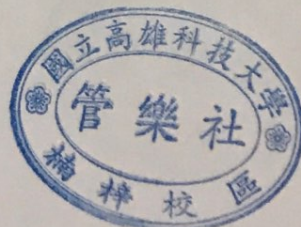 國立高雄科技大學
管樂社
楠梓校區